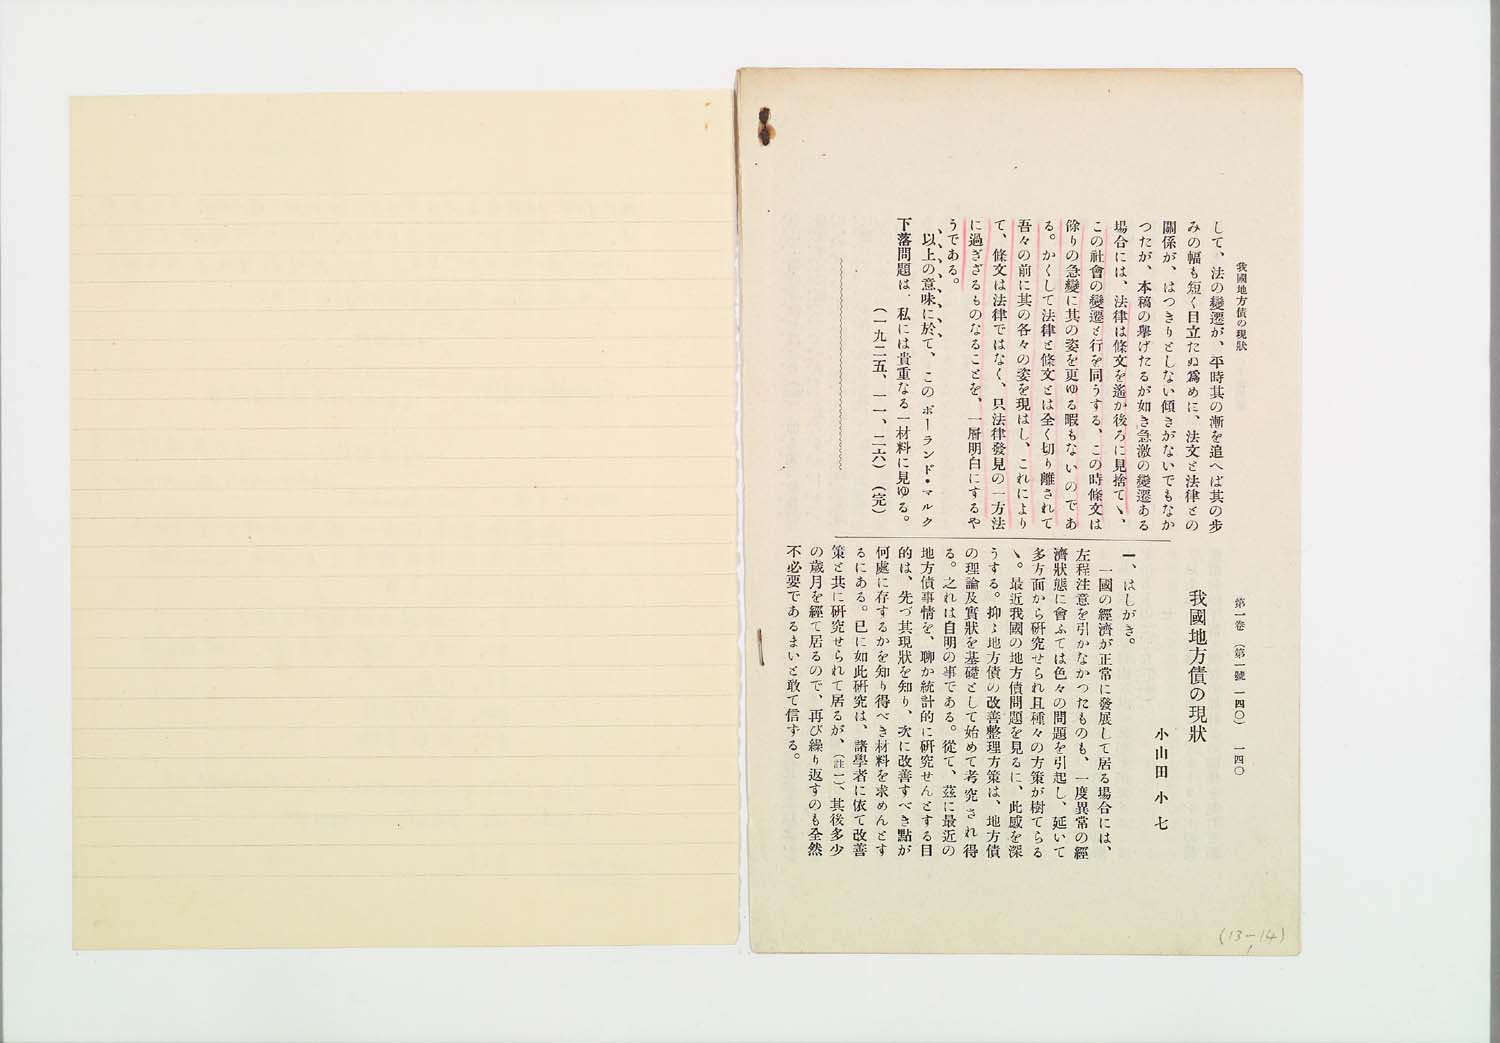 我國地方債の現狀
第一卷（第一號 一四〇） 一四〇
して、法の變遷が、平時其の漸を追へば其の步
みの幅も短く目立たぬ爲めに、法文と法律との
關係が、はつきりとしない傾きがないでもなか
つたが、本稿の擧げたるが如き急激の變遷ある
場合には、法律は條文を遙か後ろに見捨てヽ、
この社會の變遷と行を同うする、この時條文は
餘りの急變に其の姿を更ゆる暇もないのであ
る。かくして法律と條文とは全く切り離されて
吾々の前に其の各々の姿を現はし、これにより
て、條文は法律ではなく、只法律發見の一方法
に過ぎざるものなることを、一層明白にするや
うである。
以上の意味に於て、このポーランド・マルク
下落問題は、私には貴重なる一材料に見ゆる。
（一九二五、一一、二六）（完）
我國地方債の現狀
小山田小七
一、はしがき。
一國の經濟が正常に發展して居る場合には、
左程注意を引かなかつたものも、一度異常の經
濟狀態に會ふては色々の問題を引起し、延いて
多方面から研究せられ且種々の方策が樹てらる
ヽ。最近我國の地方債問題を見るに、此感を深
うする。抑〻地方債の改善整理方策は、地方債
の理論及實狀を基礎として始めて考究され得
る。之れは自明の事である。從て、茲に最近の
地方債事情を、聊か統計的に研究せんとする目
的は、先づ其現狀を知り、次に改善すべき點が
何處に存するかを知り得べき材料を求めんとす
るにある。已に如此研究は、諸學者に依て改善
策と共に研究せられて居るが、（註一）、其後多少
の歲月を經て居るので、再び繰り返すのも全然
不必要であるまいと敢て信する。
(13-14)